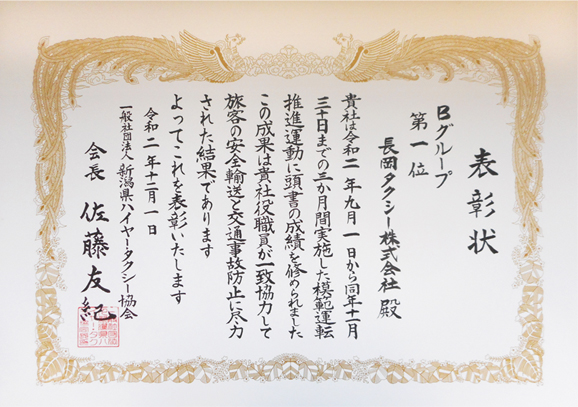 表彰状
Bグループ
第一位
長岡タクシー株式会社 殿
貴社は令和二年九月一日から同年十一月
三十日までの三か月間実施した模範運転
推進運動に頭書の成績を修められました
この成果は貴社役職員が一致協力して
旅客の安全輸送と交通事故防止に尽力
された結果であります
よってこれを表彰いたします
令和二年十二月一日
一般社団法人 新潟県ハイヤー・タクシー協会
会長 佐藤友紀